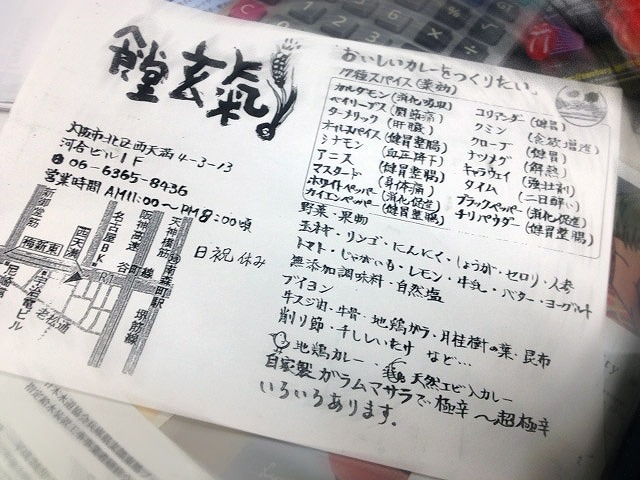 食堂玄氣
大阪市北区西天満4-3-13
河合ビル1F
06-6365-8436
営業時間 AM11:00〜PM8:00頃
日祝休み
新御堂筋
梅新東
西天満
名古屋BK
阪神高速
谷町線
天神橋筋
南森町駅
堺筋線
老松通
ビル
おいしいカレーをつくりたい。
17種スパイス(薬効)
カルダモン(消化吸収)
ベイリーブス(関節痛)
ターメリック(肝臓)
オールスパイス(健胃整腸)
シナモン(血圧降下)
アニス(健胃整腸)
マスタード(身体痛)
ホワイトペッパー(消化促進)
カイエンペッパー(健胃整腸)
コリアンダー(健胃)
クミン(食欲増進)
クローブ(健胃)
ナツメグ(解熱)
キャラウェイ(強壮剤)
タイム(二日酔い)
ブラックペッパー(消化促進)
チリパウダー(健胃整腸)
野菜・果物
玉ネギ・リンゴ・にんにく・しょうが・セロリ・人参
トマト・じゃがいも・レモン・牛乳・バター・ヨーグルト
無添加調味料・自然塩
ブイヨン
牛スジ肉・牛骨・地鶏ガラ・月桂樹の葉・昆布
削り節・干ししいたけ など…
地鶏カレー・天然エビ入カレー
自家製ガラムマサラで極辛〜超極辛
いろいろあります。